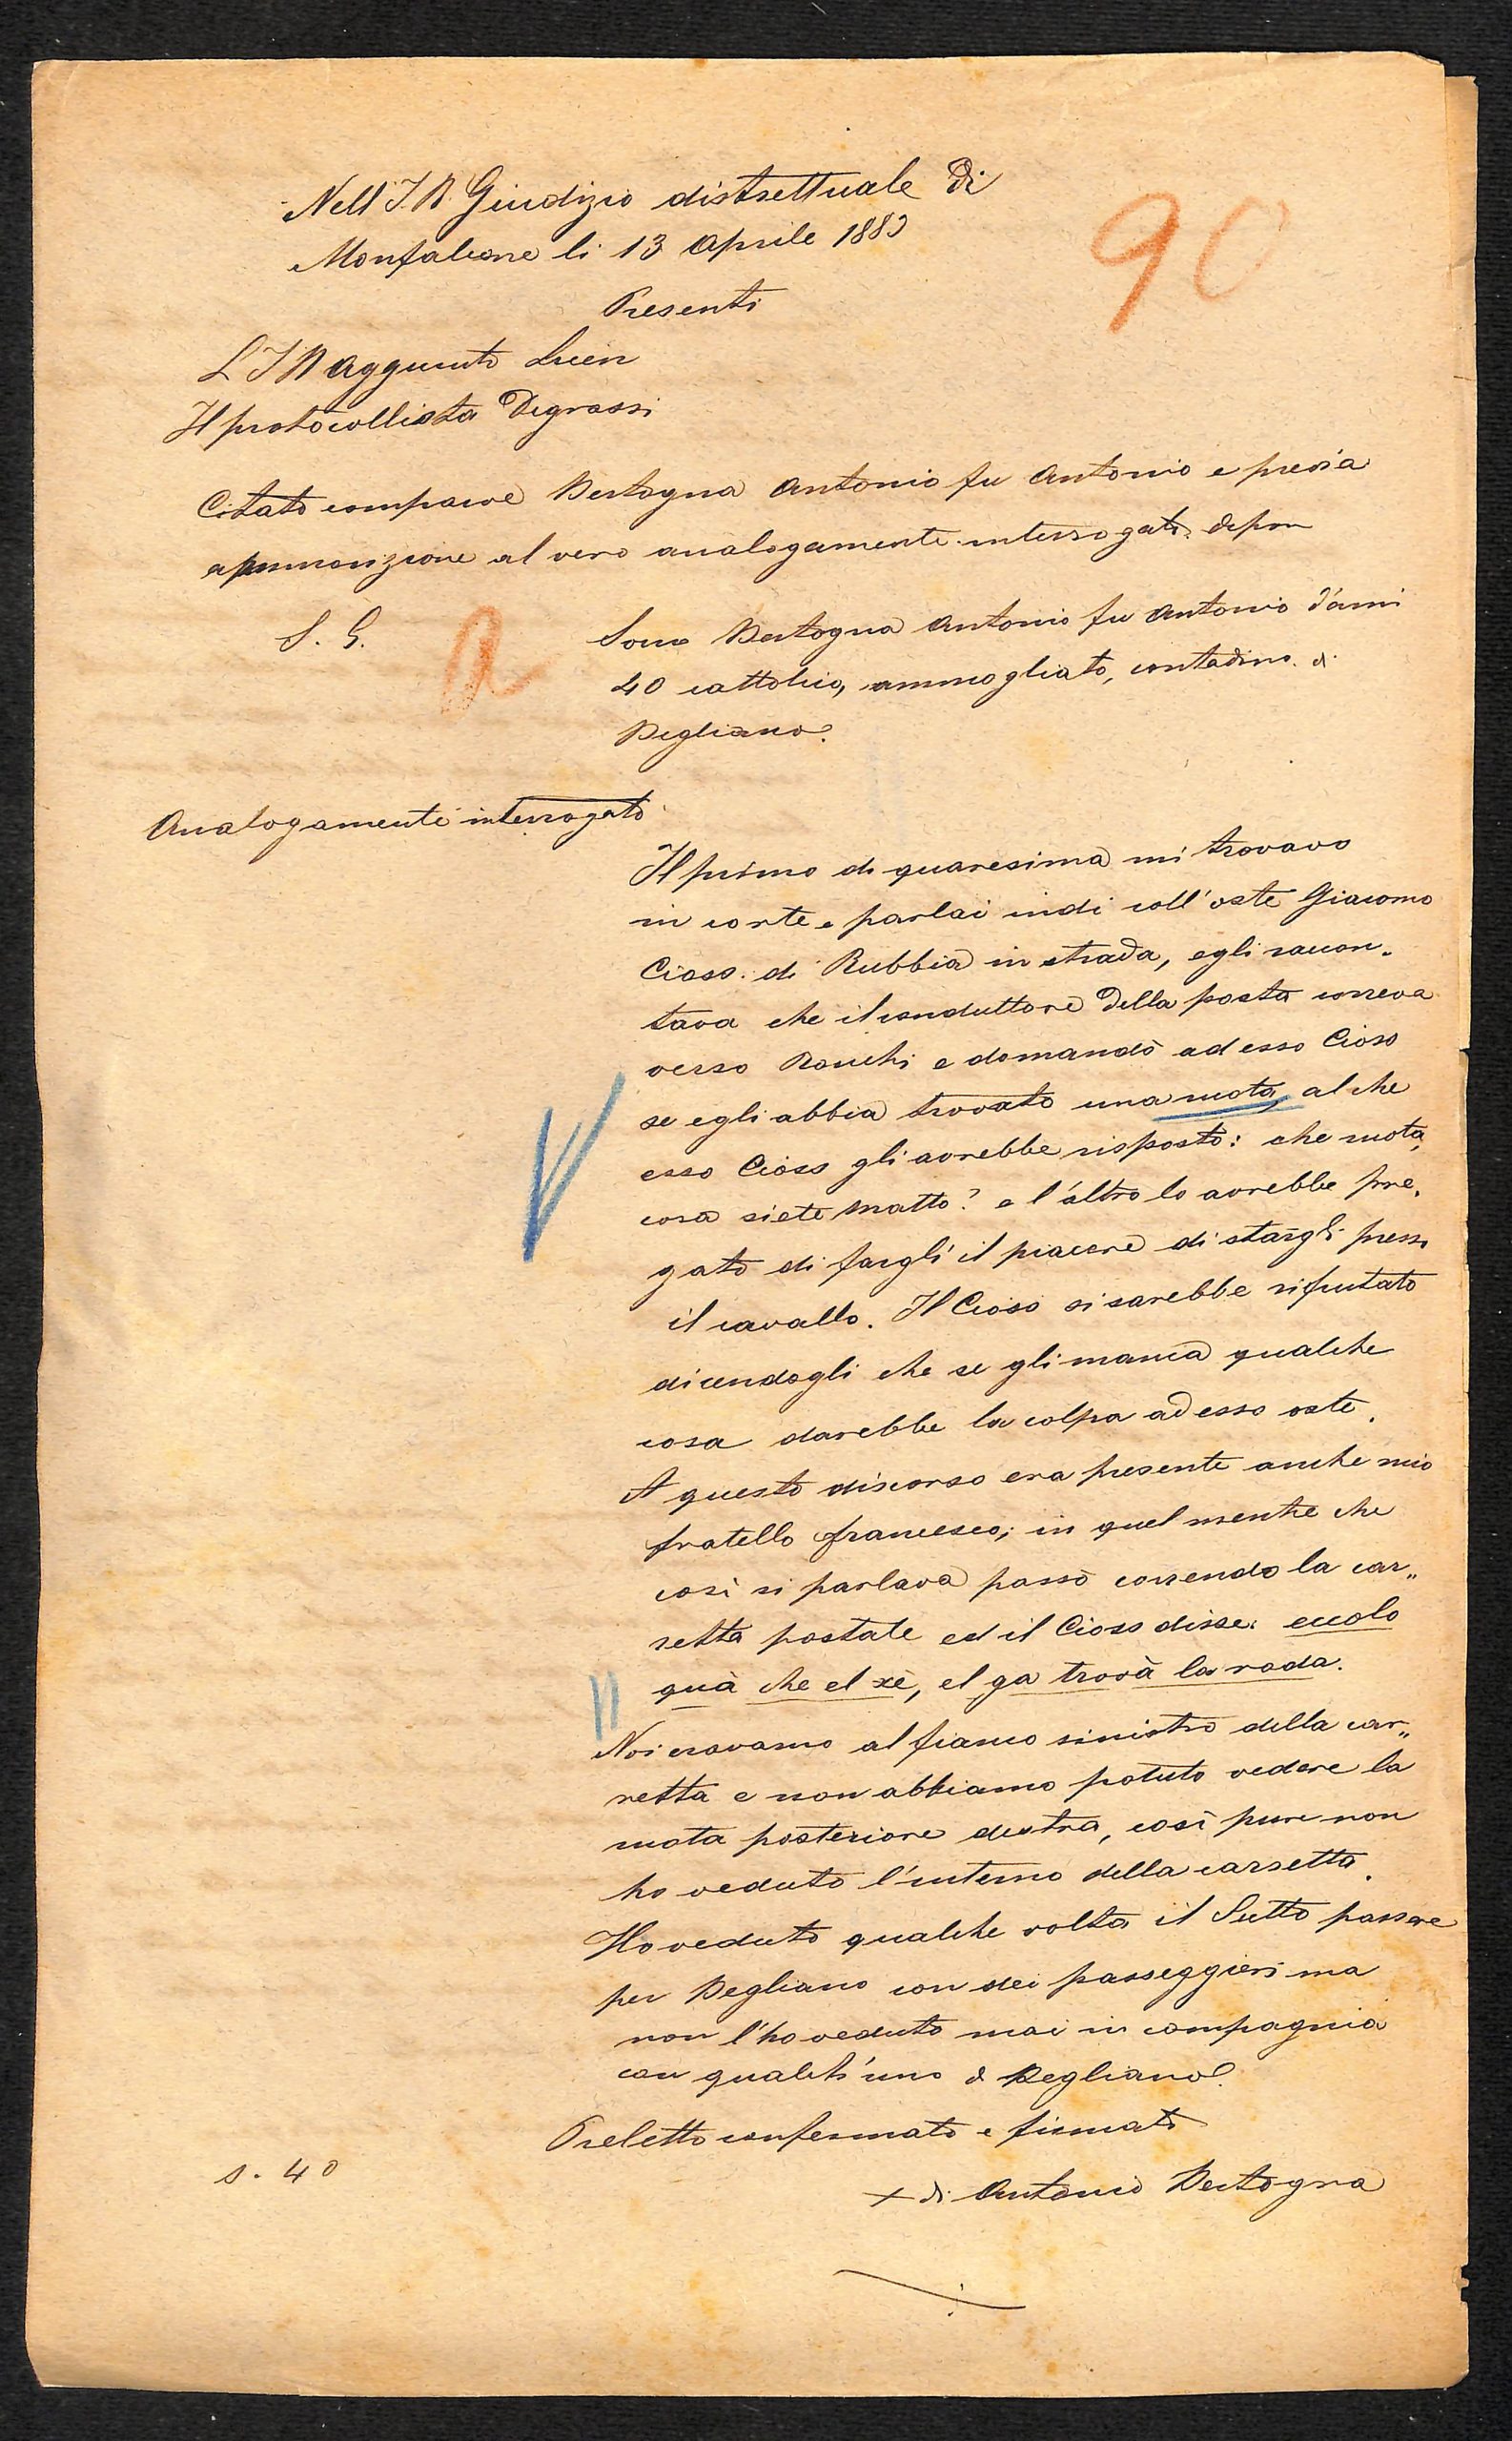 Nell' I. R. Giudizio distrettuale di
Monfalcone li 13 Aprile 1883
90
Presenti
L I R Aggiunto
Il protocollista Degrassi
Citato comparve Bertogna Antonio fu Antonio e previa
ammonizione al vero analogamente interrogato depon
S. G.
a
Sono Bertogna Antonio fu Antonio d'anni
40 cattolico, ammogliato, contadino di
Begliano.
Analogamente interrogato
Il primo di quaresima mi trovavo
in corte e parlai indi coll'oste Giacomo
Cioso di Rubbia in strada, egli raccon-
tava che il conduttore della posta correva
verso Ronchi e domandò ad esso Cioso
se egli abbia trovato una ruota, al che
esso Cioso gli avrebbe risposto: che ruota,
cosa siete matto? e l'altro lo avrebbe pre-
gato di fargli il piacere di stargli presso
il cavallo. Il Cioso si sarebbe rifiutato
dicendogli che se gli manca qualche
cosa darebbe la colpa ad esso oste.
A questo discorso era presente anche mio
fratello Francesco; in quel mentre che
così si parlava passò correndo la car„
retta postale ed il Cioso disse: eccolo
quà che el xè, el ga trovà la roda.
Noi eravamo al fianco sinistro della car„
retta e non abbiamo potuto vedere la
ruota posteriore destra, così pure non
ho veduto l'interno della carretta.
Ho veduto qualche volta il Sutto passare
per Begliano con dei passeggieri ma
non l'ho veduto mai in compagnia
con qualch'uno di Begliano.
Preletto confermato e firmato
s. 40
+ di Antonio Bertogna